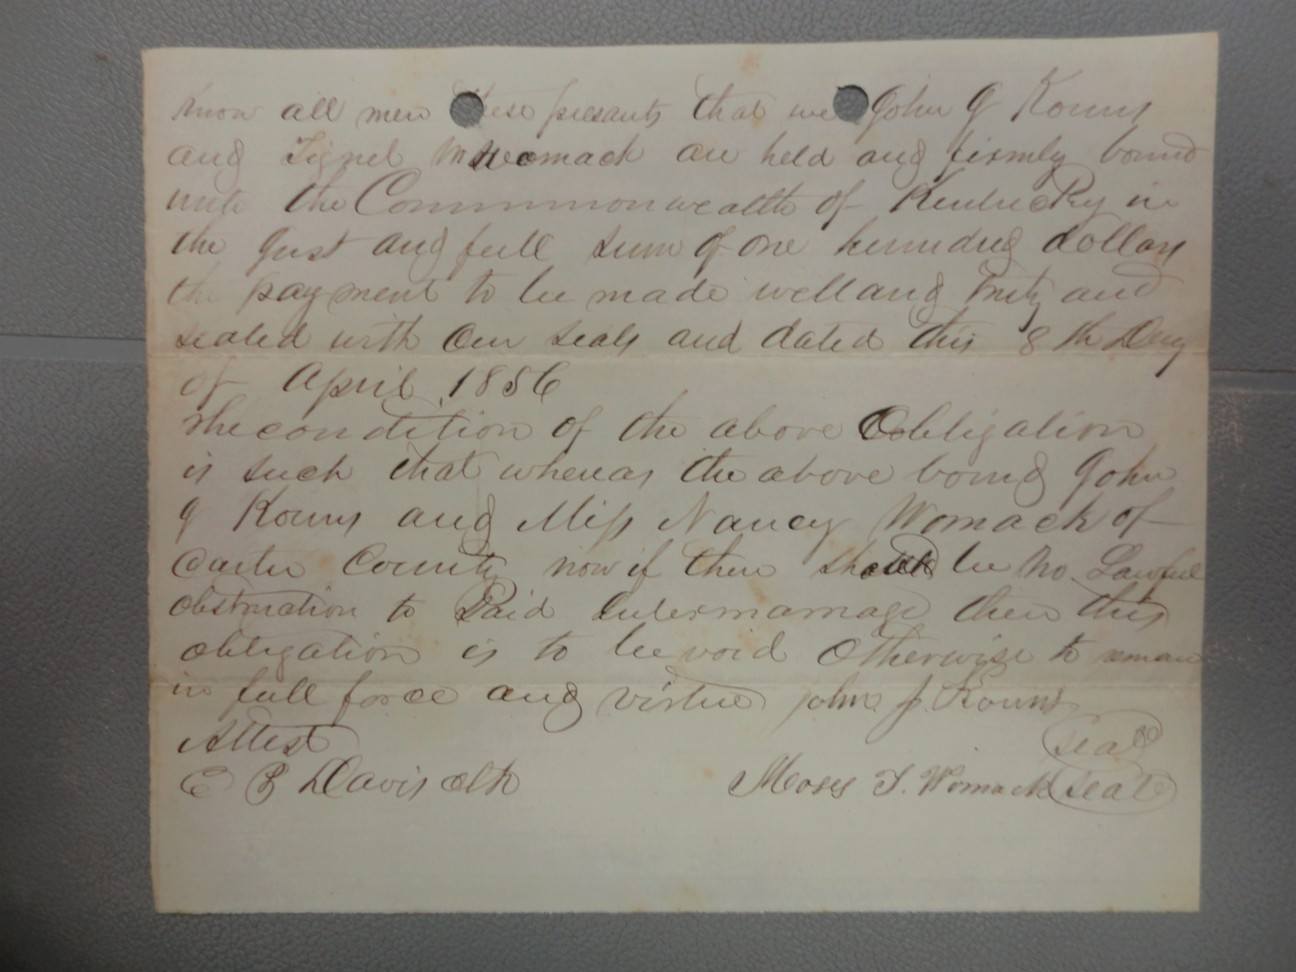 Know all men these presants that we John J Kouns
and Signel M Womack are held and firmly bound
unto the Commonwealth of Kentucky in
the Just and full sum of one hundred dollars
the payment to be made well and truly and
sealed with our seals and dated this 8th Day
of April 1856
The condition of the above Obligation
is such that whereas the above bound John
J Kouns and Miss Nancy Womack of
Carter County now if there should be no Lawful
obstruction to Said intermarriage then this
obligation is to be void Otherwise to remain
in full force and virtue John J. Kouns
Attest Seal
C B Davis clk Moses T. Womack Seal